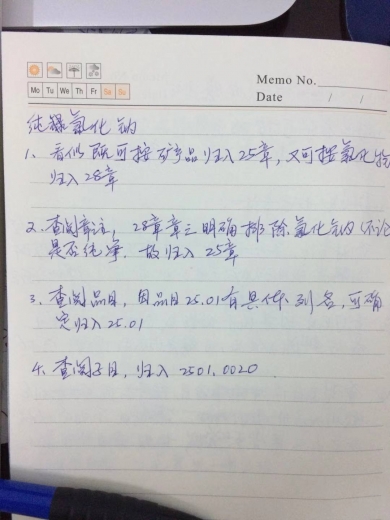 Memo No.
Mo Tu We Th Fr Sa Su
Date / /
纯氯化钠
1、看似既可按矿产品归入25章，又可按氯化物
归入28章
2、查阅章注，28章章注三明确排除氯化钠(不论
是否纯净，故归入25章
3、查阅品目，因品目25.01有具体列名，可确
定归入25.01
4、查阅子目，归入2501.0020